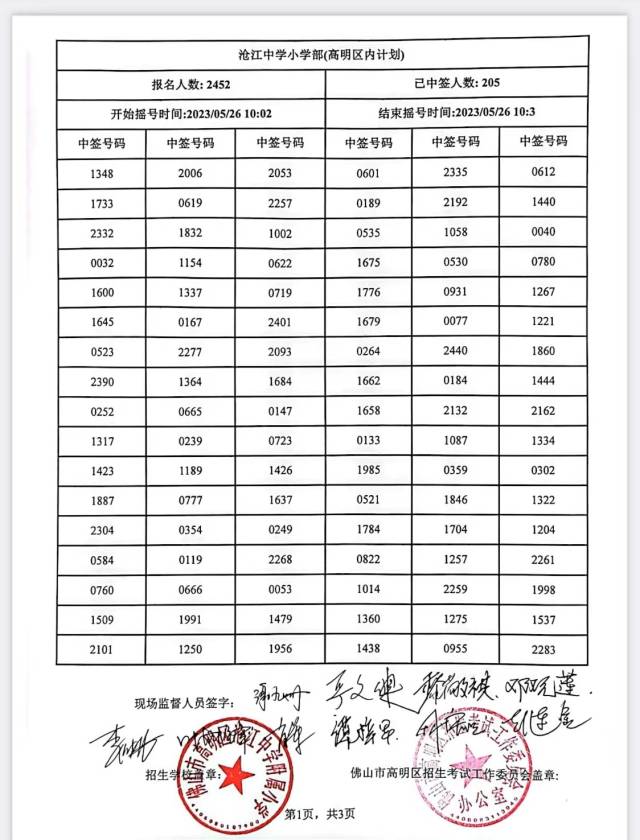 沧江中学小学部(高明区内计划)
报名人数: 2452 已中签人数: 205
开始摇号时间:2023/05/26 10:02 结束摇号时间:2023/05/26 10:3
中签号码 中签号码 中签号码 中签号码 中签号码 中签号码
1348 2006 2053 0601 2335 0612
1733 0619 2257 0189 2192 1440
2332 1832 1002 0535 1058 0040
0032 1154 0622 1675 0530 0780
1600 1337 0719 1776 0931 1267
1645 0167 2401 1679 0077 1221
0523 2277 2093 0264 2440 1860
2390 1364 1684 1662 0184 1444
0252 0665 0147 1658 2132 2162
1317 0239 0723 0133 1087 1334
1423 1189 1426 1985 0359 0302
1887 0777 1637 0521 1846 1322
2304 0354 0249 1784 1704 1204
0584 0119 2268 0822 1257 2261
0760 0666 0053 1014 2259 1998
1509 1991 1479 1360 1275 1537
2101 1250 1956 1438 0955 2283
现场监督人员签字:
招生学校盖章: 佛山市高明区招生考试工作委员会盖章:
佛山市高明区沧江中学附属小学
办公室
第1页，共3页